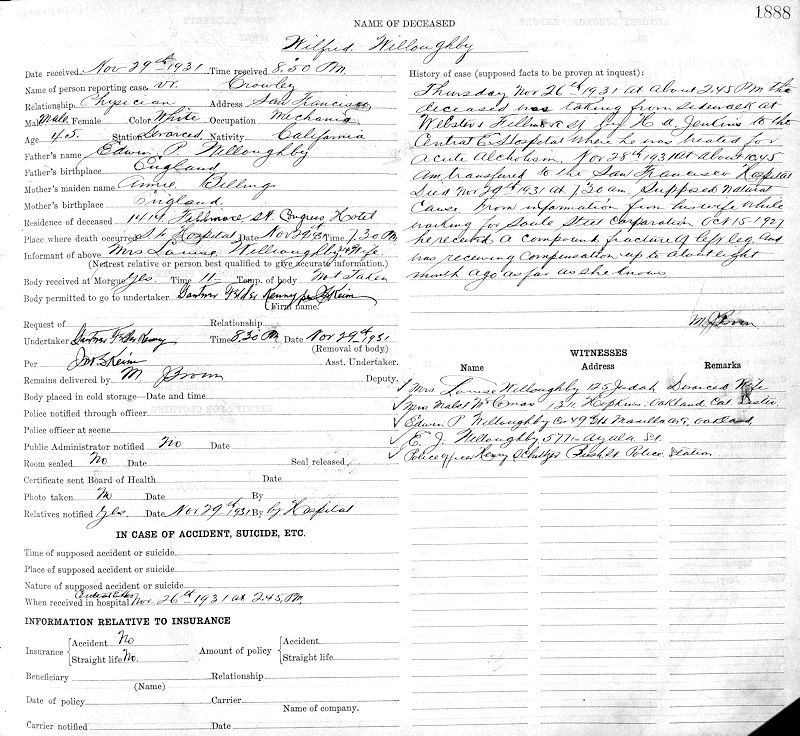 1888
NAME OF DECEASED
Wilfred Willoughby
Date received Nov 29th 1931 Time received 8:50 PM
Name of person reporting case Dr. Crowley
Relationship Physician Address San Francisco
Male Male, Female Color White Occupation Mechanic
Age 43. Station Divorced Nativity California
Father's name Edwin P Willoughby
Father's birthplace England
Mother's maiden name Annie Billing
Mother's birthplace England
Residence of deceased 1414 Fillmore St. Congress Hotel
Place where death occurred S F Hospital Date Nov 29th 31 Time 7.30 PM
Informant of above Mrs Louise Willoughby Wife
(Nearest relative or person best qualified to give accurate information.)
Body received at Morgue Yes. Time Temp. of body Not Taken
Body permitted to go to undertaker Kenny per Keim
(Firm name.)
Request of Relationship
Undertaker Kenny Time 8.30 PM Date Nov 29th 1931
(Removal of body)
Per Jno B Keim Asst. Undertaker.
Remains delivered by M. J Brown Deputy.
Body placed in cold storage—Date and time
Police notified through officer
Police officer at scene
Public Administrator notified No Date
Room sealed No Date Seal released
Certificate sent Board of Health Date
Photo taken No Date By
Relatives notified Yes. Date Nov 29th 1931 By by Hospital
IN CASE OF ACCIDENT, SUICIDE, ETC.
Time of supposed accident or suicide
Place of supposed accident or suicide
Nature of supposed accident or suicide
Central
When received in hospital Nov. 26th 1931 at 2.45 PM.
INFORMATION RELATIVE TO INSURANCE
Insurance Accident No Amount of policy Accident
Straight life No. Straight life
Beneficiary Relationship
(Name)
Date of policy Carrier
Name of company.
Carrier notified Date
History of case (supposed facts to be proven at inquest):
Thursday Nov 26th 1931 at about 2.45 PM the
deceased was taking from sidewalk at
Webster & Fillmore St by H A Jenkins to the
Central E Hospital where he was treated for
Acute Alcholism, Nov 28th 1931 at about 10.45
am transferred to the San Francisco Hospital
Died Nov 29th 1931 at 7.30 am, Supposed Natural
Cause from information from his wife while
working for Soule Steel Corparation Oct 15-1927
he received a compound fracture of left leg. And
was receiving compensation up to about eight
month ago as far as she knows.
M J Brown
WITNESSES
Name Address Remarks
Mrs Louise Willoughby 125 Judah Divorced Wife
Mrs Mabel McComas Hopkins. Oakland, Cal Sister
Edwin P Willoughby Oakland,
E. J. Willoughby 5772 Ayala St.
Police officer Henry Schultzer Bush St Police Station